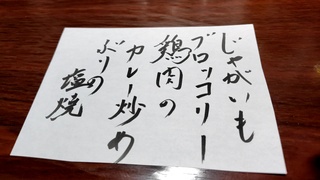 じゃがいも
ブロッコリー
鶏肉の
カレー炒め
ぶりの
塩焼